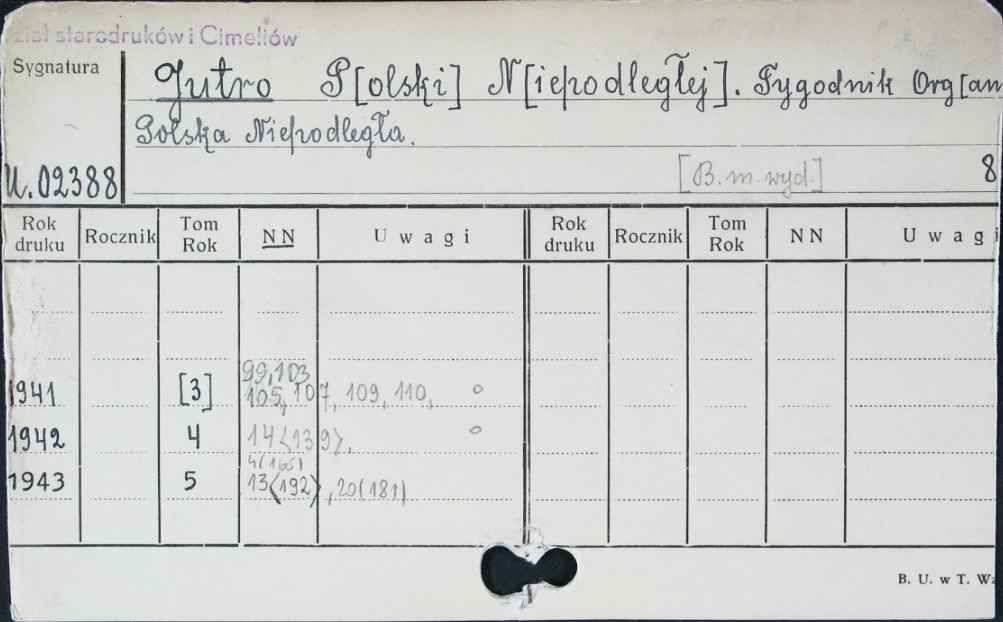 ział starodruków i Cimeliów
Sygnatura
Jutro P[olski] N[iepodległej]. Tygodnik Org[an
Polska Niepodległa.
U.02388
[B.m.wyd.] 8
Rok druku Rocznik Tom Rok NN Uwagi Rok druku Rocznik Tom Rok NN Uwagi
99,103
1941 [3] 105, 107, 109, 110,
1942 4 14<139>,
4(165)
1943 5 13<192>, 20(181)
B. U. w T. Wz